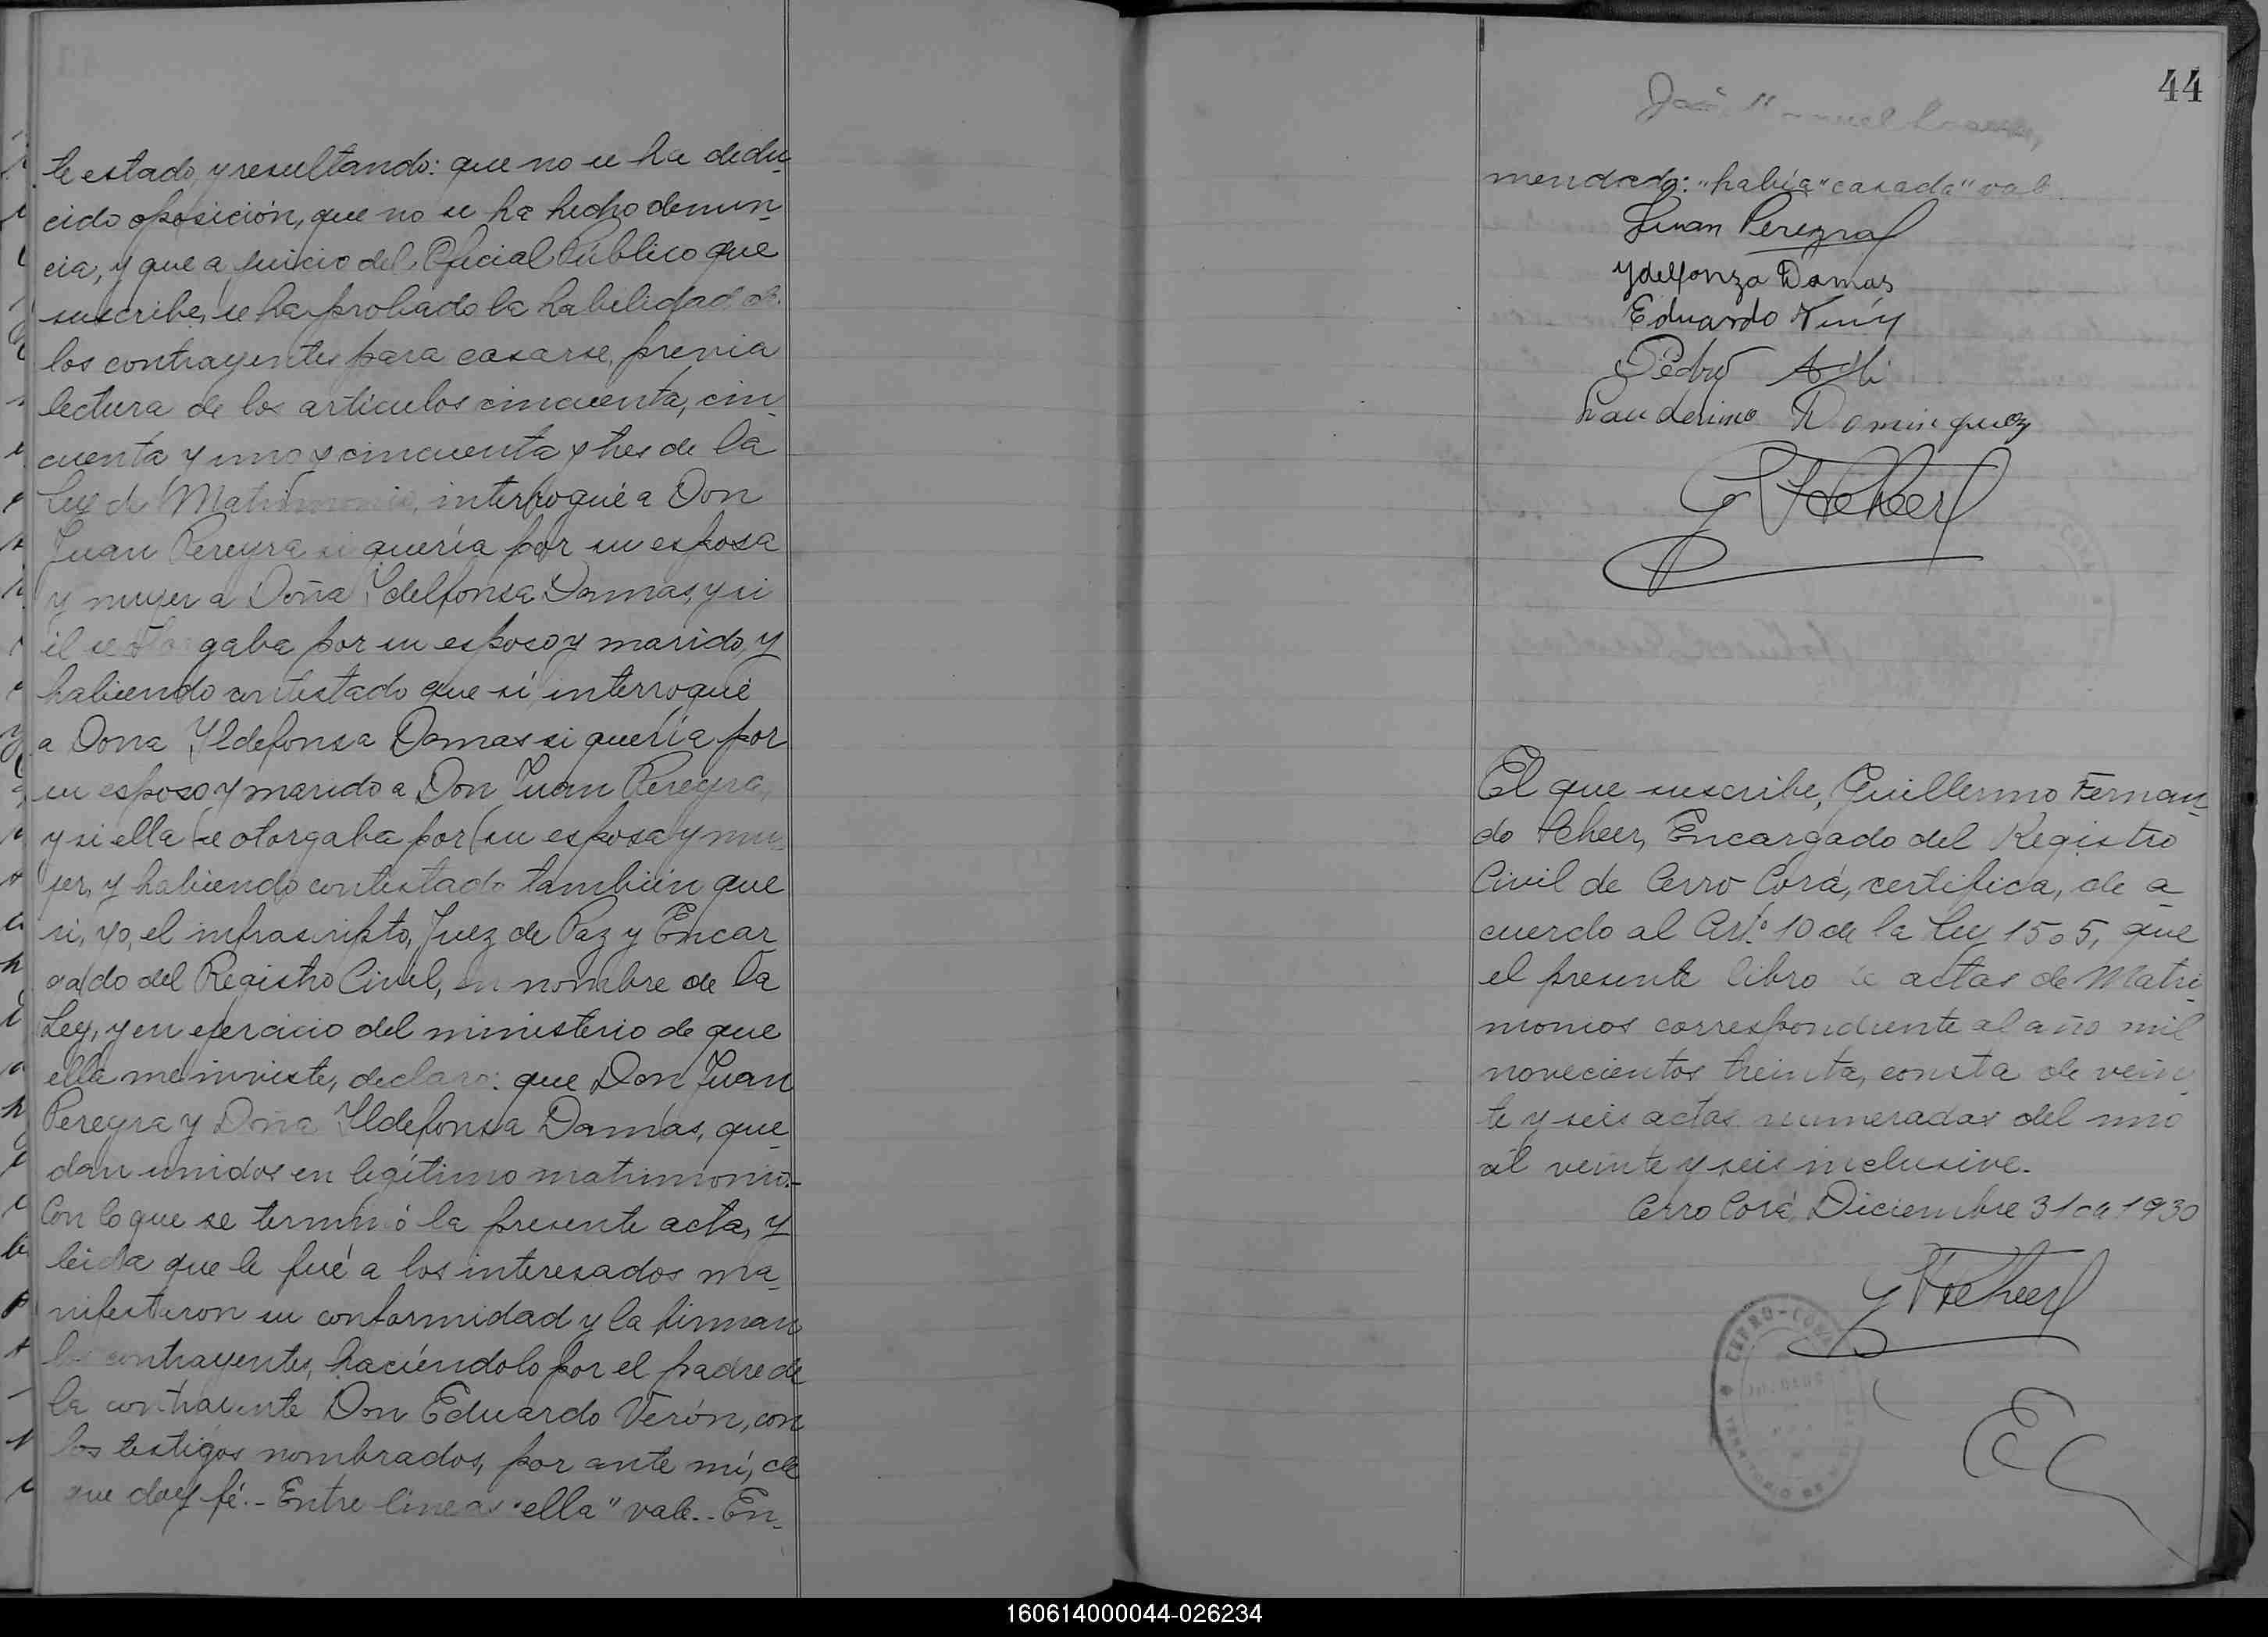 te estado, y resultando: que no se ha dedu-
cido oposición, que no se ha hecho denun-
cia, y que a juicio del Oficial Público que
suscribe, se ha probado la habilidad de
los contrayentes para casarse, previa
lectura de los artículos cincuenta, cin-
cuenta y uno y cincuenta y tres de la
Ley de Matrimonio, interrogué a Don
Juan Pereyra si quería por su esposa
y mujer a Doña Ydelfonsa Damas, y si
él se otorgaba por su esposo y marido, y
habiendo contestado que sí, interrogué
a Dona Yldefonsa Damas si quería por
su esposo y marido a Don Juan Pereyra,
y si ella se otorgaba por su esposa y mu-
jer, y habiendo contestado también que
si, yo, el infrascripto, Juez de Paz y Encar-
gado del Registro Civil, en nombre de la
Ley, y en ejercicio del ministerio de que
ella me inviste, declaro: que Don Juan
Pereyra y Doña Yldefonsa Damás, que-
dan unidos en legítimo matrimonio.-
Con lo que se terminó la presente acta, y
leida que le fué a los interesados ma-
nifestaron su conformidad y la firman
los contrayentes, haciéndolo por el padre de
la contrayente Don Eduardo Verón, con
los testigos nombrados, por ante mí, de
que doy fé.- Entre lineas "ella" vale.- En-
44
José Manuel
mendado: "había" "casada" vale
Juan Pereyra
Ydelfonza Damas
Eduardo
Pedro
Dominguez
El que suscribe, Guillermo Fernan-
do Scheer, Encargado del Registro
Civil de Cerro Corá, certifica, de a-
cuerdo al Art.º 10 de la Ley 1505, que
el presente libro de actas de Matri-
monios correspondiente al año mil
novecientos treinta, consta de vein-
te y seis actas numeradas del uno
al veinte y seis inclusive.
Cerro Corá, Diciembre 31 de 1930
CERRO-CORA
160614000044-026234